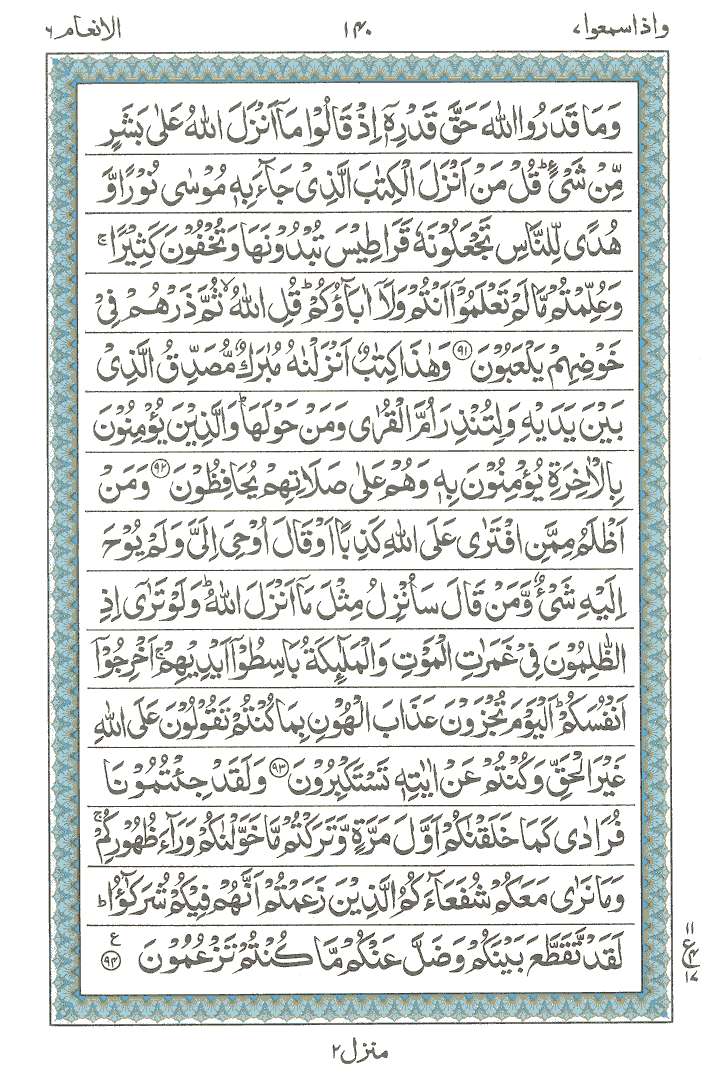 واذاسمعوا۷ ۱۴۰ الانعام۶
وَمَا قَدَرُوا اللّٰهَ حَقَّ قَدْرِهٖۤ اِذْ قَالُوْا مَاۤ اَنْزَلَ اللّٰهُ عَلٰى بَشَرٍ
مِّنْ شَیْءٍؕ قُلْ مَنْ اَنْزَلَ الْكِتٰبَ الَّذِیْ جَآءَ بِهٖ مُوْسٰى نُوْرًا وَّ
هُدًى لِّلنَّاسِ تَجْعَلُوْنَهٗ قَرَاطِیْسَ تُبْدُوْنَهَا وَتُخْفُوْنَ كَثِیْرًاۚ
وَعُلِّمْتُمْ مَّا لَمْ تَعْلَمُوْۤا اَنْتُمْ وَلَاۤ اٰبَآؤُكُمْؕ قُلِ اللّٰهُۙ ثُمَّ ذَرْهُمْ فِیْ
خَوْضِهِمْ یَلْعَبُوْنَ ۹۱ وَهٰذَا كِتٰبٌ اَنْزَلْنٰهُ مُبٰرَكٌ مُّصَدِّقُ الَّذِیْ
بَیْنَ یَدَیْهِ وَلِتُنْذِرَ اُمَّ الْقُرٰى وَمَنْ حَوْلَهَاؕ وَالَّذِیْنَ یُؤْمِنُوْنَ
بِالْاٰخِرَةِ یُؤْمِنُوْنَ بِهٖ وَهُمْ عَلٰى صَلَاتِهِمْ یُحَافِظُوْنَ ۹۲ وَمَنْ
اَظْلَمُ مِمَّنِ افْتَرٰى عَلَى اللّٰهِ كَذِبًا اَوْ قَالَ اُوْحِیَ اِلَیَّ وَلَمْ یُوْحَ
اِلَیْهِ شَیْءٌ وَّمَنْ قَالَ سَاُنْزِلُ مِثْلَ مَاۤ اَنْزَلَ اللّٰهُؕ وَلَوْ تَرٰۤى اِذِ
الظّٰلِمُوْنَ فِیْ غَمَرٰتِ الْمَوْتِ وَالْمَلٰٓىِٕكَةُ بَاسِطُوْۤا اَیْدِیْهِمْۚ اَخْرِجُوْۤا
اَنْفُسَكُمْؕ اَلْیَوْمَ تُجْزَوْنَ عَذَابَ الْهُوْنِ بِمَا كُنْتُمْ تَقُوْلُوْنَ عَلَى اللّٰهِ
غَیْرَ الْحَقِّ وَكُنْتُمْ عَنْ اٰیٰتِهٖ تَسْتَكْبِرُوْنَ ۹۳ وَلَقَدْ جِئْتُمُوْنَا
فُرَادٰى كَمَا خَلَقْنٰكُمْ اَوَّلَ مَرَّةٍ وَّتَرَكْتُمْ مَّا خَوَّلْنٰكُمْ وَرَآءَ ظُهُوْرِكُمْۚ
وَمَا نَرٰى مَعَكُمْ شُفَعَآءَكُمُ الَّذِیْنَ زَعَمْتُمْ اَنَّهُمْ فِیْكُمْ شُرَكٰٓؤُاؕ
لَقَدْ تَّقَطَّعَ بَیْنَكُمْ وَضَلَّ عَنْكُمْ مَّا كُنْتُمْ تَزْعُمُوْنَ ۹۴ ع
۱۱
ع ۴
۱۷
منزل۲